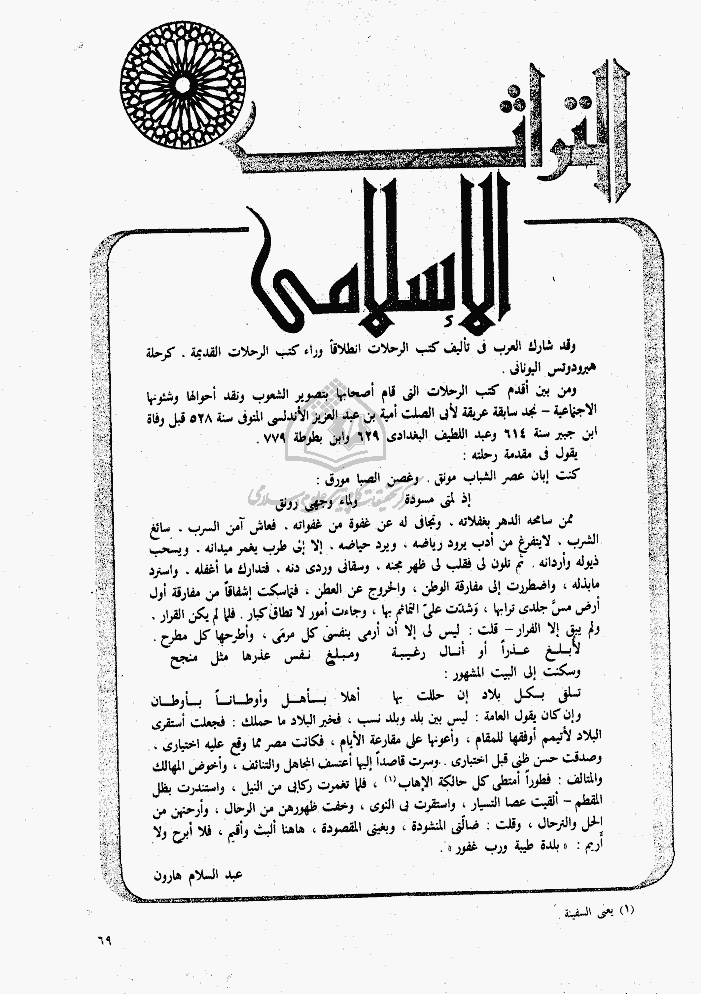 التراث
الإسلامى
وقد شارك العرب فى تأليف كتب الرحلات انطلاقاً وراء كتب الرحلات القديمة . كرحلة
هيرودوتس اليونانى .
ومن بين أقدم كتب الرحلات التى قام أصحابها بتصوير الشعوب ونقد أحوالها وشئونها
الاجتماعية – نجد سابقة عريقة لأبى الصلت أمية بن عبد العزيز الأندلسى المتوفى سنة ٥٢٨ قبل وفاة
ابن جبير سنة ٦١٤ وعبد اللطيف البغدادى ٦٢٩ وابن بطوطة ٧٧٩ .
يقول فى مقدمة رحلته :
كنت إبان عصر الشباب مونق . وغصن الصبا مورق :
إذ لمتى مسودة ولماء وجهى رونق
ممن سامحه الدهر بغفلاته . وتجافى له عن غفوة من غفواته . فعاش آمن السرب . سائغ
الشرب . لايتفرغ من أدب يرود رياضه . ويرد حياضه . إلا إلى طرب يغمر ميدانه . ويسحب
ذيوله وأردانه . ثم تلون لى فقلب لى ظهر مجنه . وسقانى وردى دنه . فتدارك ما أغفله . واسترد
مابذله ، واضطررت إلى مفارقة الوطن ، والخروج عن العطن . فتماسكت إشفاقاً من مفارقة أول
أرض مسَّ جلدى ترابها ، وَشُدّت علىّ التمائم بها ، وجاءت أمور لا تطاق كبار . فلما لم يكن القرار .
ولم يبق إلا الفرار – قلت : ليس لى إلا أن أرمى بنفسى كل مرمى ، وأطرحها كل مطرح .
لأبلغ عذراً أو أنال رغيبة ومبلغ نفس عذرها مثل منجح
وسكنت إلى البيت المشهور :
تلقى بكل بلاد إن حللت بها أهلا بأهل وأوطاناً بأوطان
وإن كان يقول العامة : ليس بين بلد وبلد نسب ، فخير البلاد ما حملك : فجعلت أستقرى
البلاد لأتيمم أوفقها للمقام ، وأعونها على مقارعة الأيام ، فكانت مصر مما وقع عليه اختيارى .
وصدقت حسن ظنى قبل اختيارى . وسرت قاصداً إليها أعتسف المجاهل والتنائف ، وأخوض المهالك
والمتالف : فطوراً أمتطى كل حالكة الإهاب (١) ، فلما تغمرت ركابى من النيل ، واستندرت بظل
المقطم – ألقيت عصا التسيار ، واستقرت بى النوى ، وخفت ظهورهن من الرحال ، وأرحتهن من
الحل والترحال ، وقلت : ضالّتى المنشودة ، وبغيتى المقصودة ، هاهنا ألبث وأقيم ، فلا أبرح ولا
أريم : « بلدة طيبة ورب غفور » .
عبد السلام هارون
(١) يعنى السفينة .
٦٩